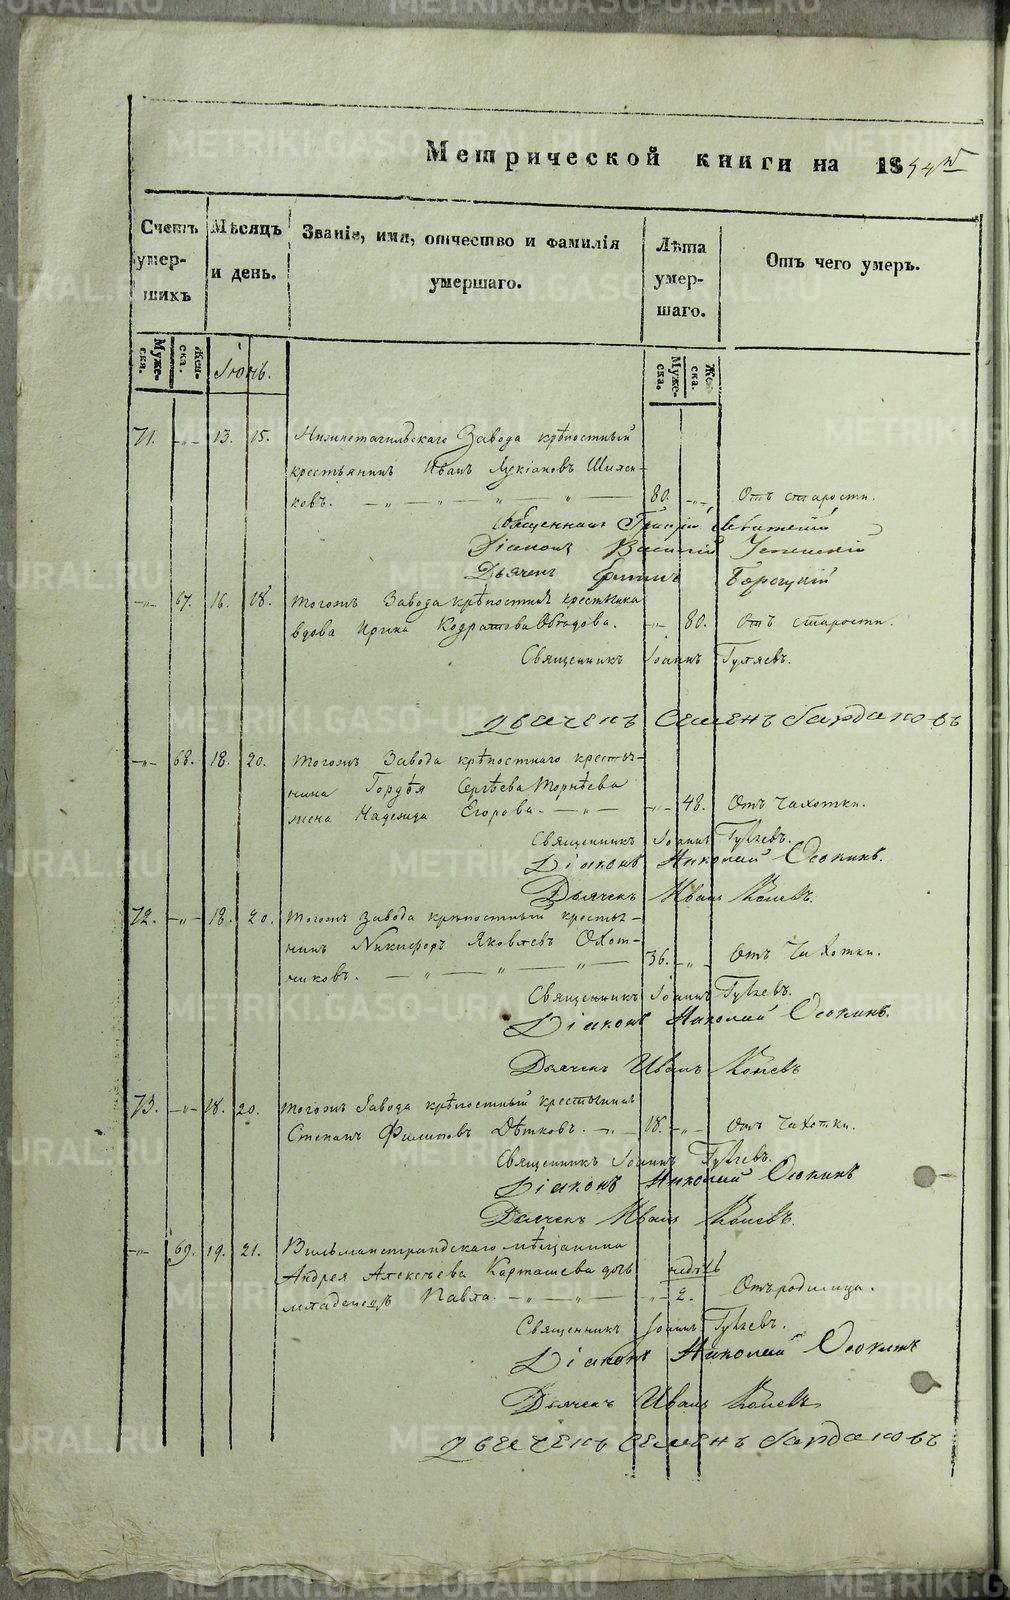 Метрической книги на 1854й
Счетъ умершихъ
Мѣсяцъ и день.
Званіе, имя, отчество и фамилія умершаго.
Лѣта умершаго.
Отъ чего умеръ.
Мужеска.
Женска.
Іюнь.
Мужеска.
Женска.
71. -„- 13. 15. Нижнетагильскаго Завода крѣпостный
крестьянинъ Иванъ Лукіановъ
ковъ. - „ - „ - „ - „ - 80. -„- Отъ старости.
Священникъ
Діаконъ Василій
Дьячекъ
-„- 67. 16. 18. Тогожъ Завода крѣпостная
вдова Ирина Кодратова Обѣдова. -„- 80. отъ старости.
Священникъ Іоаннъ Гуляевъ.
Дьячекъ Семенъ Бардаковъ
-„- 68. 18. 20. Тогожъ Завода крѣпостнаго крестья-
нина Гордѣя Сергѣева
жена Надежда Егорова. - „ - -„- 48. Отъ Чахотки.
Священникъ Іоаннъ Гуляевъ.
Діаконъ Николай Осокинъ.
Дьячекъ Иванъ Коневъ.
72. -„- 18. 20. Тогожъ Завода крѣпостный крестья-
нинъ Никифоръ Яковлевъ Охот-
никовъ. - „ - „ - „ - 36. -„- Отъ Чахотки.
Священникъ Іоаннъ Гуляевъ.
Діаконъ Николай Осокинъ.
Дьячекъ Иванъ Коневъ
73. -„- 18. 20. Тогожъ Завода крѣпостный крестьянинъ
Степанъ Филиповъ Дѣтковъ. -„- 18. -„- Отъ Чахотки.
Священникъ Іоаннъ Гуляевъ.
Діаконъ Николай Осокинъ
Дьячекъ Иванъ Коневъ.
-„- 69. 19. 21. Вильманстрандскаго мѣщанина
Андрея Алексѣева Карташева дочь недѣль
младенецъ Павла. - „ - „ - -„- 2. Отъ родимца.
Священникъ Іоаннъ Гуляевъ.
Діаконъ Николай Осокинъ
Дьячекъ Иванъ Коневъ
Дьячекъ Семенъ Бардаковъ
METRIKI.GASO-URAL.RU